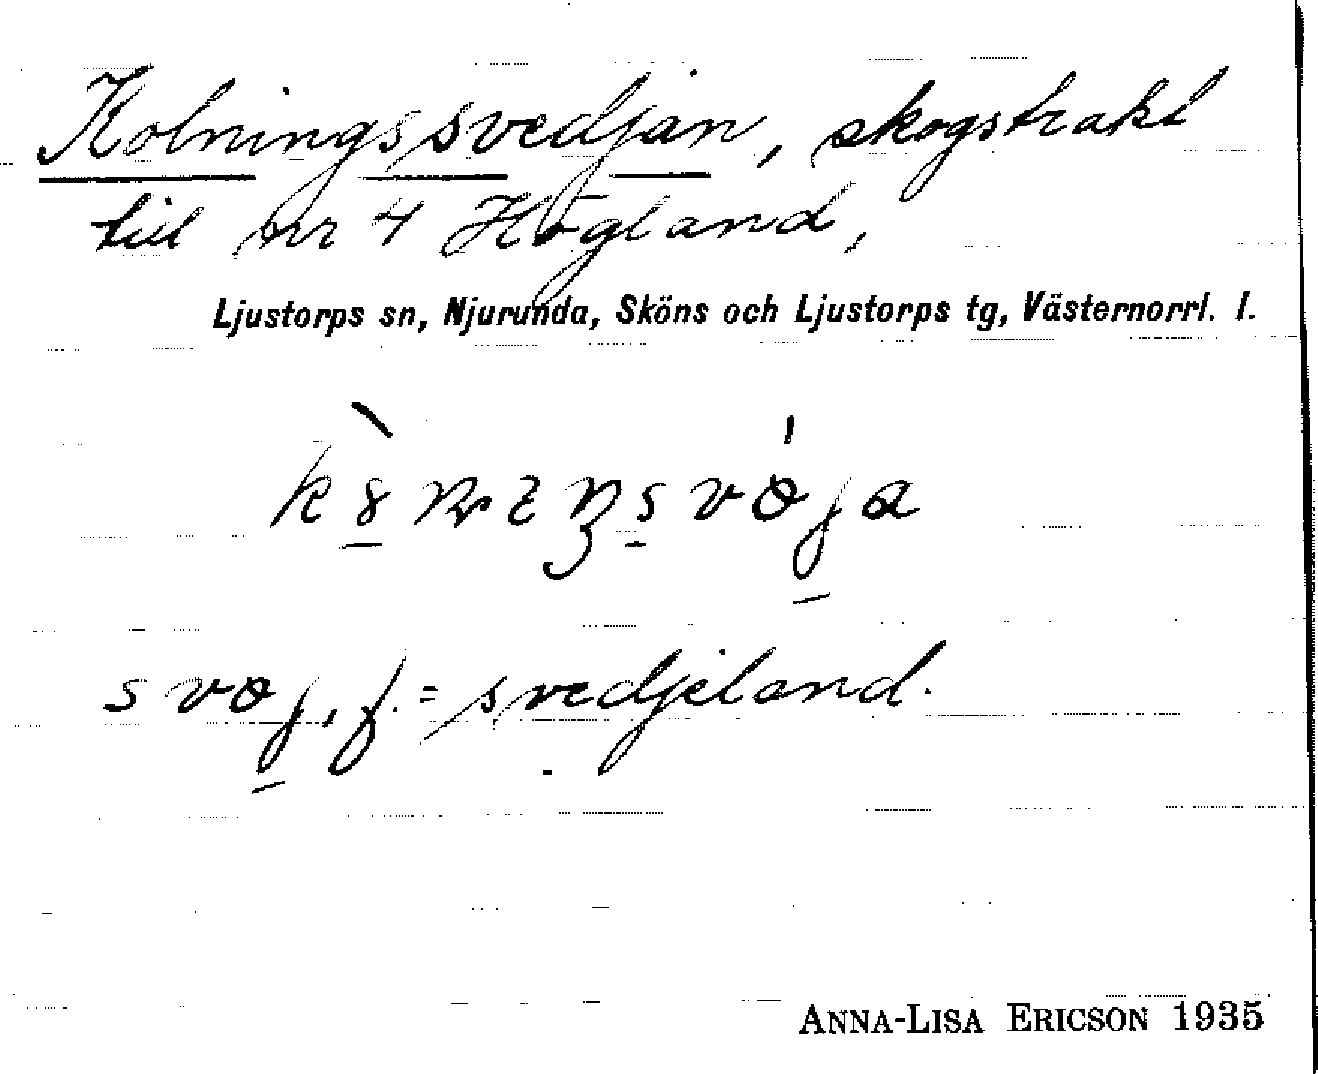 Kolningssvedjan, skogstrakt
till nr 4 Högland,
Ljustorps sn, Njurunda, Sköns och Ljustorps tg, Västernorrl. l.
f. = svedjeland.
ANNA-LISA ERICSON 1935